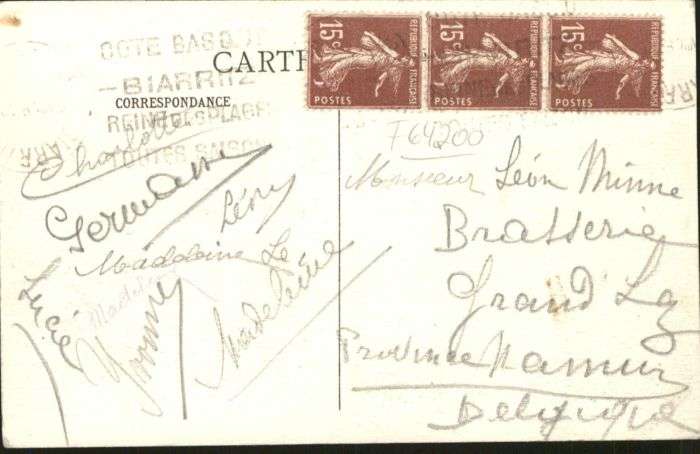 COTE BASQUE
-BIARRITZ
REINE DES PLAGES
TOUTES SAISONS
CARTE
CORRESPONDANCE
15c REPUBLIQUE FRANÇAISE POSTES
15c REPUBLIQUE FRANÇAISE POSTES
15c REPUBLIQUE FRANÇAISE POSTES
Charlotte
Germaine
Léony
Madeleine Le
Lucie
Madele
Yvonne
Madeleine
F64200
Monsieur Léon Minne
Brasserie
Grand Lez
Province Namur
Belgique